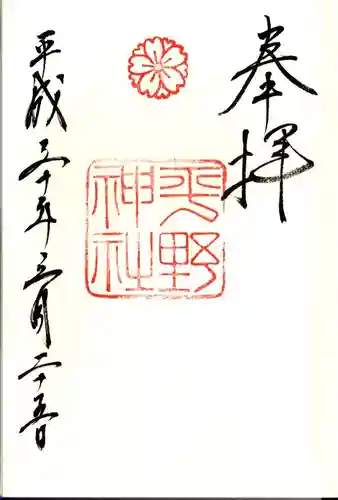 奉拝
平野
神社
平成三十年三月二十五日